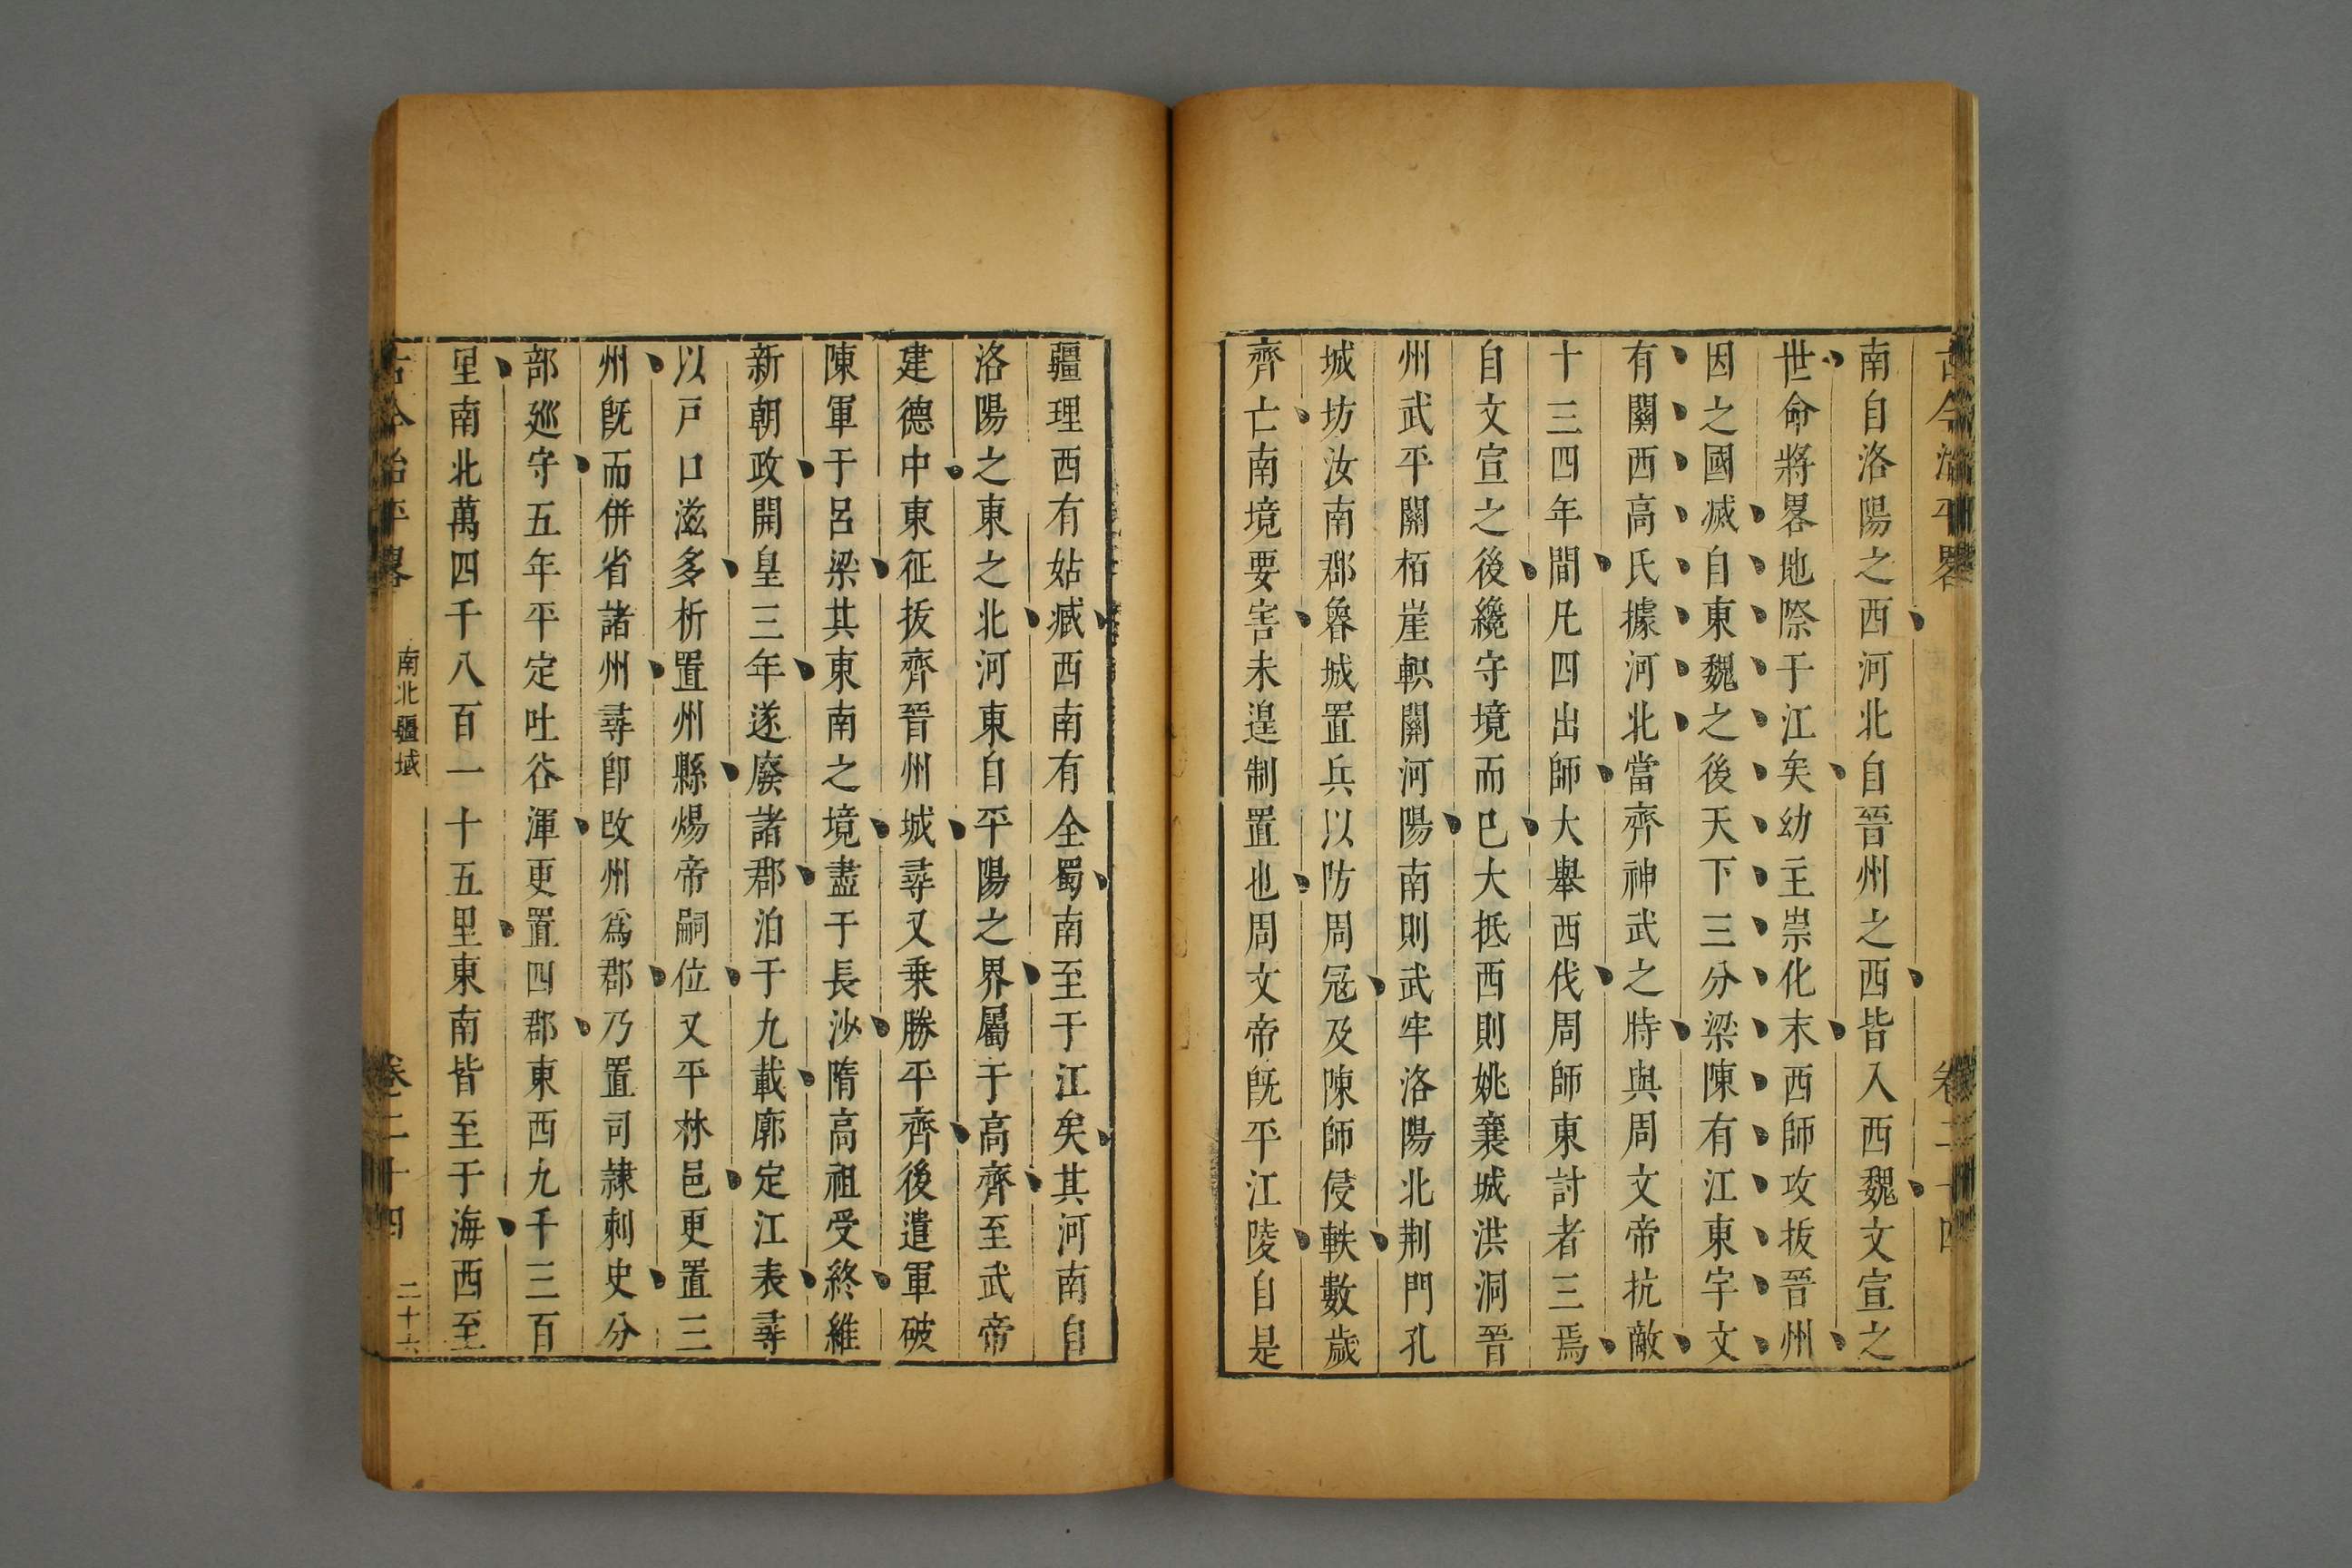 古今治平畧 卷二十四
南自洛陽之西河北自晉州之西皆入西魏文宣之
世命將畧地際于江矣幼主崇化末西師攻拔晉州
因之國滅自東魏之後天下三分梁陳有江東宇文
有關西高氏據河北當齊神武之時與周文帝抗敵
十三四年間凡四出師大舉西伐周師東討者三焉
自文宣之後纔守境而巳大抵西則姚襄城洪洞晉
州武平關栢崖軹關河陽南則武牢洛陽北荆門孔
城坊汝南郡魯城置兵以防周冦及陳師侵軼數歲
齊亡南境要害未遑制置也周文帝旣平江陵自是
疆理西有姑臧西南有全蜀南至于江矣其河南自
洛陽之東之北河東自平陽之界屬于高齊至武帝
建德中東征拔齊晉州城尋又乗勝平齊後遣軍破
陳軍于呂梁其東南之境盡于長沙隋高祖受終維
新朝政開皇三年遂廢諸郡泊于九載廓定江表尋
以戸口滋多析置州縣煬帝嗣位又平林邑更置三
州旣而併省諸州尋卽改州爲郡乃置司隷刺史分
部廵守五年平定吐谷渾更置四郡東西九千三百
里南北萬四千八百一十五里東南皆至于海西至
古今治平畧 南北疆域 卷二十四 二十六